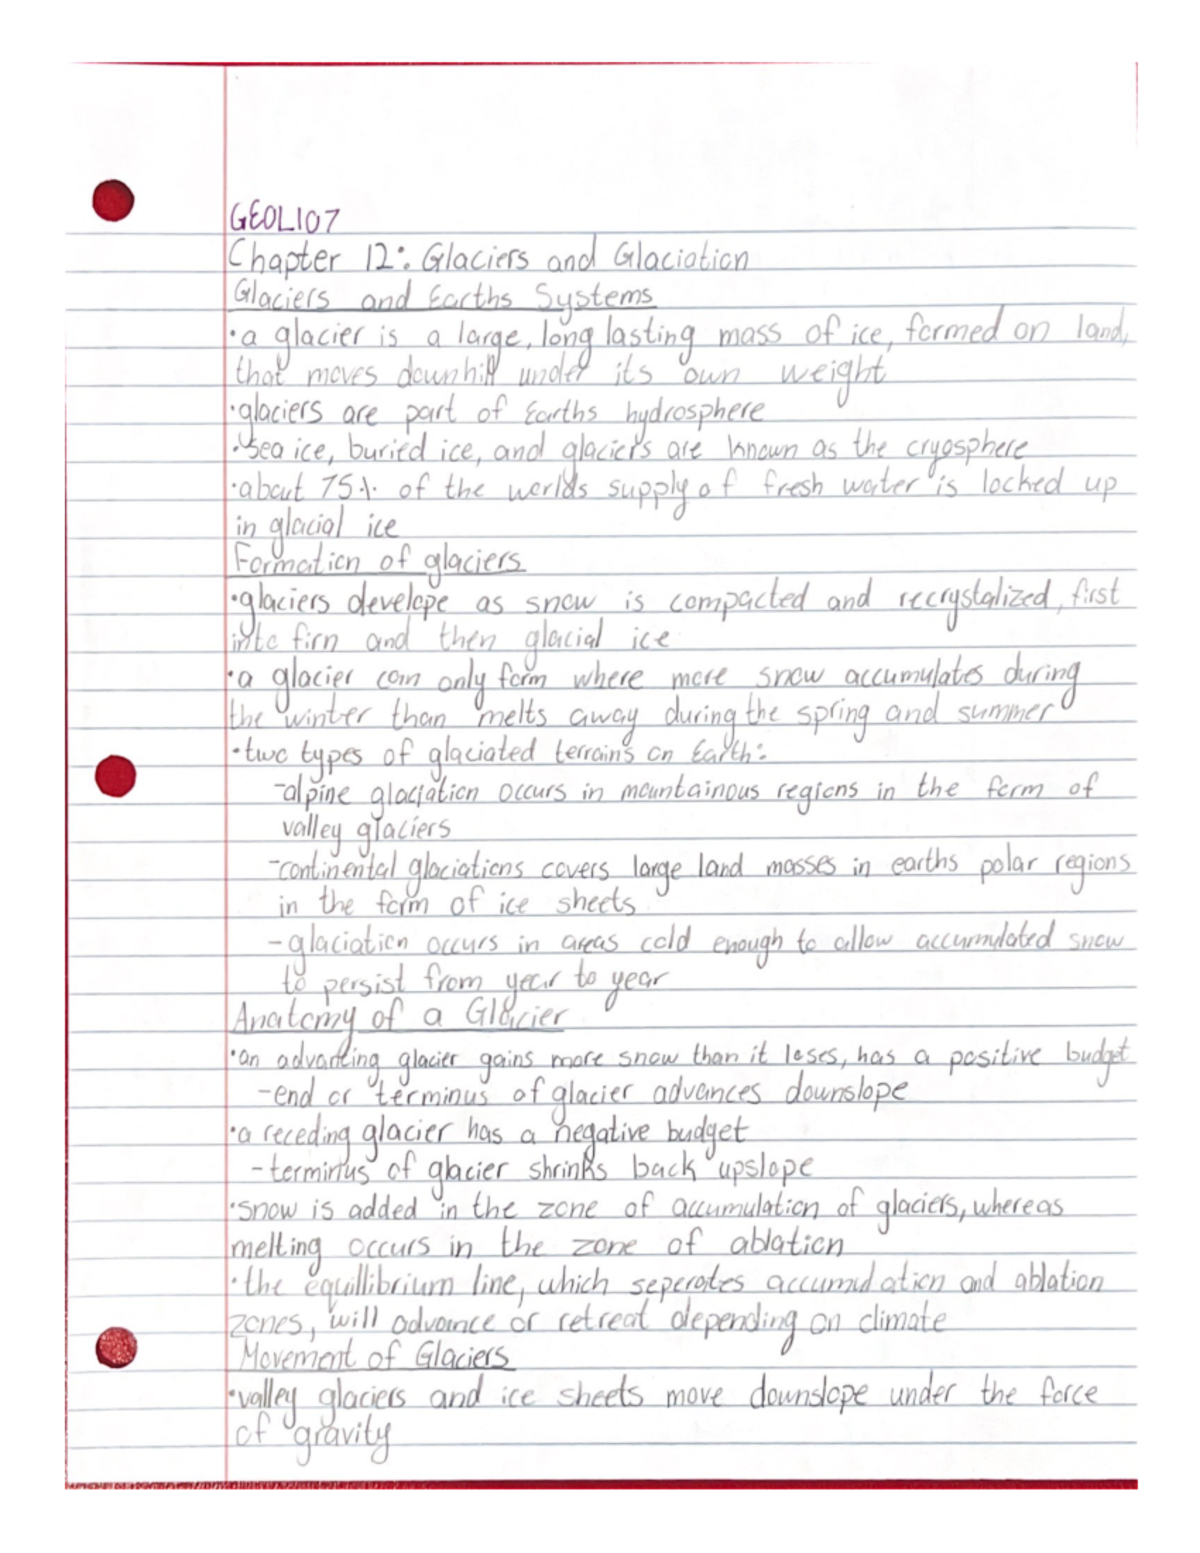 GEOL107
Chapter 12: Glaciers and Glaciation
Glaciers and Earths Systems
•a glacier is a large, long lasting mass of ice, formed on land,
that moves downhill under its own weight
•glaciers are part of Earths hydrosphere
•sea ice, buried ice, and glaciers are known as the cryosphere
•about 75% of the worlds supply of fresh water is locked up
in glacial ice
Formation of glaciers
•glaciers develope as snow is compacted and recrystalized, first
into firn and then glacial ice
•a glacier can only form where more snow accumulates during
the winter than melts away during the spring and summer
•two types of glaciated terrains on Earth:
-alpine glaciation occurs in mountainous regions in the form of
valley glaciers
-continental glaciations covers large land masses in earths polar regions
in the form of ice sheets
-glaciation occurs in areas cold enough to allow accumulated snow
to persist from year to year
Anatomy of a Glacier
•an advancing glacier gains more snow than it loses, has a positive budget
-end or terminus of glacier advances downslope
•a receding glacier has a negative budget
-terminus of glacier shrinks back upslope
•snow is added in the zone of accumulation of glaciers, whereas
melting occurs in the zone of ablation
•the equillibrium line, which seperates accumulation and ablation
zones, will advance or retreat depending on climate
Movement of Glaciers
•valley glaciers and ice sheets move downslope under the force
of gravity